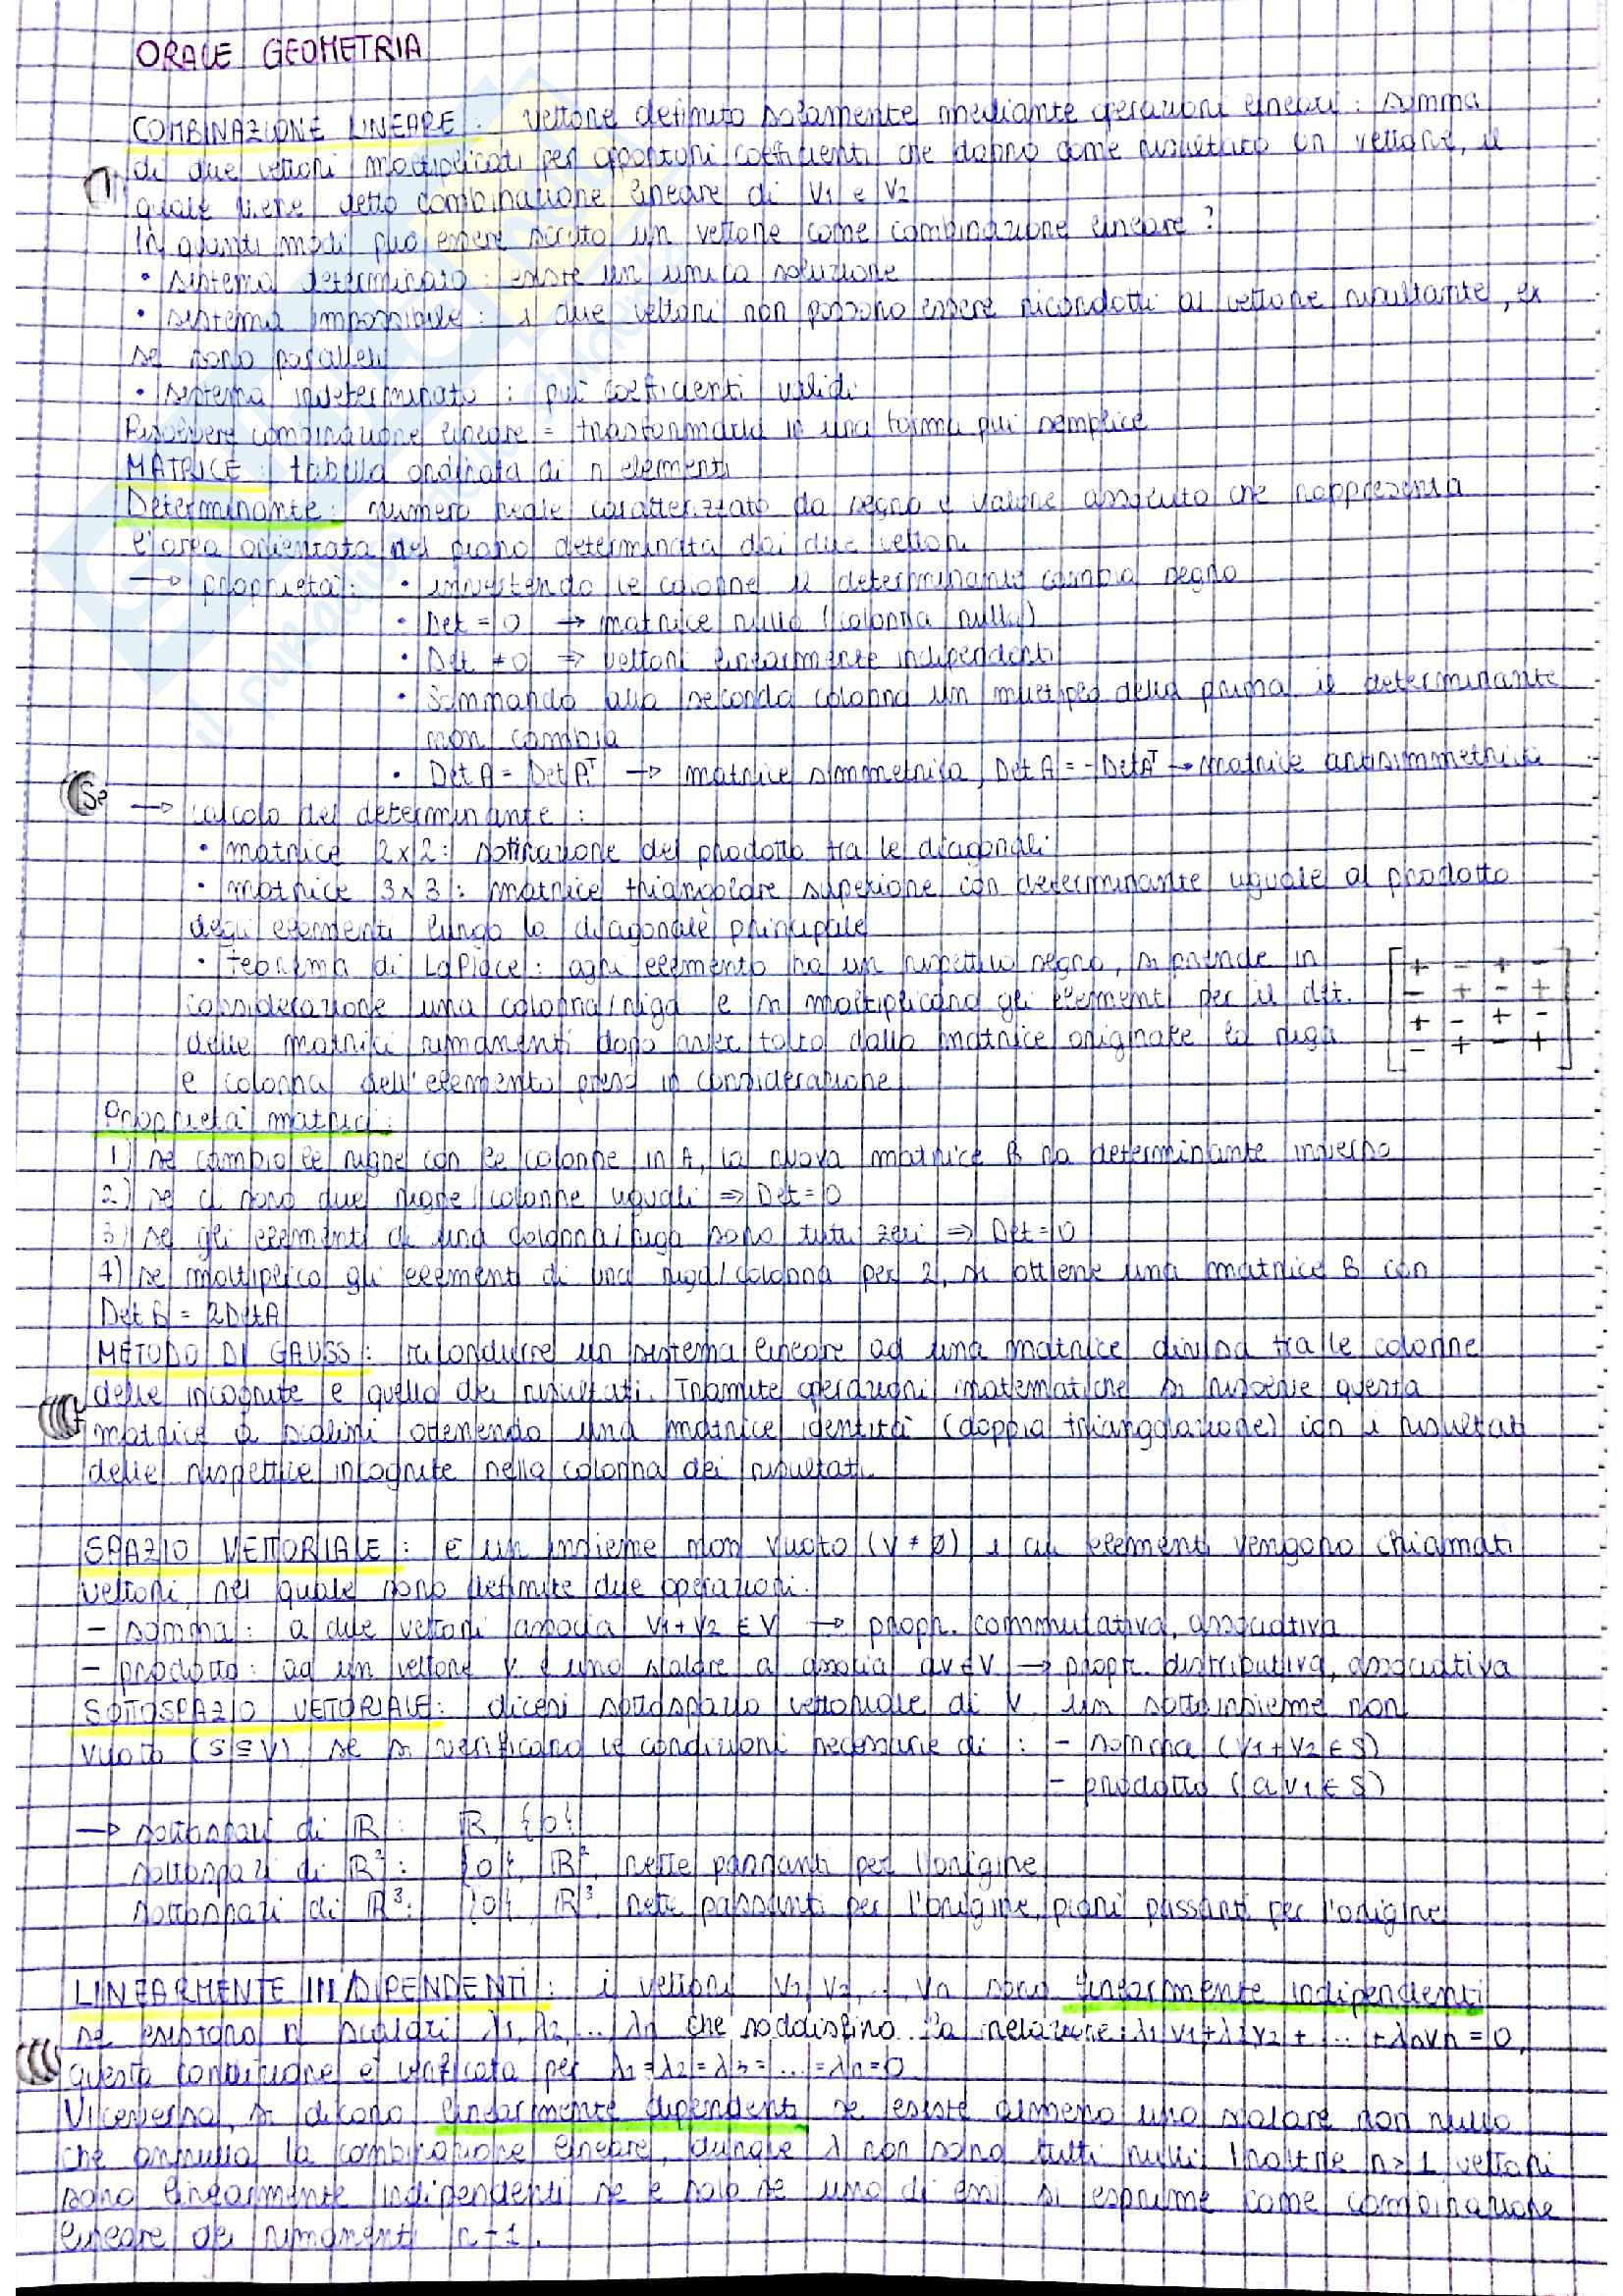 ORALE GEOMETRIA
COMBINAZIONE LINEARE: vettore definito solamente mediante operazioni lineari: somma
di due vettori moltiplicati per opportuni coefficienti che danno come risultato un vettore, il
quale viene detto combinazione lineare di V1 e V2
In quanti modi può essere scritto un vettore come combinazione lineare?
• sistema determinato: esiste un'unica soluzione
• sistema impossibile: i due vettori non possono essere ricondotti al vettore risultante, ex
se sono paralleli
• sistema indeterminato: più coefficienti validi
Risolvere combinazione lineare = trasformarla in una forma più semplice
MATRICE: tabella ordinata di n elementi
Determinante: numero reale caratterizzato da segno e valore assoluto che rappresenta
l'area orientata nel piano determinata dai due vettori
→ proprietà: • invertendo le colonne il determinante cambia segno
• Det = 0 → matrice nulla (colonna nulla)
• Det ≠ 0 ⇒ vettori linearmente indipendenti
• Sommando alla seconda colonna un multiplo della prima il determinante
non cambia
• Det A = Det Aᵀ → matrice simmetrica, Det A = - Det Aᵀ → matrice antisimmetrica
→ calcolo del determinante:
• matrice 2x2: sottrazione del prodotto tra le diagonali
• matrice 3x3: matrice triangolare superiore con determinante uguale al prodotto
degli elementi lungo la diagonale principale
• Teorema di LaPlace: ogni elemento ha un rispettivo segno, si prende in
considerazione una colonna/riga e si moltiplicano gli elementi per il det.
delle matrici rimanenti dopo aver tolto dalla matrice originale la riga
e colonna dell'elemento preso in considerazione
+ - + -
- + - +
+ - + -
- + - +
Proprietà matrici:
1) se cambio le righe con le colonne in A, la nuova matrice B ha determinante inverso
2) se ci sono due righe/colonne uguali ⇒ Det = 0
3) se gli elementi di una colonna/riga sono tutti zeri ⇒ Det = 0
4) se moltiplico gli elementi di una riga/colonna per 2, si ottiene una matrice B con
Det B = 2Det A
METODO DI GAUSS: ricondurre un sistema lineare ad una matrice divisa tra le colonne
delle incognite e quella dei risultati. Tramite operazioni matematiche si risolve questa
matrice a scalini ottenendo una matrice identità (doppia triangolazione) con i risultati
delle rispettive incognite nella colonna dei risultati.
SPAZIO VETTORIALE: è un insieme non vuoto (V ≠ ∅) i cui elementi vengono chiamati
vettori, nel quale sono definite due operazioni:
- somma: a due vettori associa V1+V2 ∈ V → propr. commutativa, associativa
- prodotto: ad un vettore v e uno scalare a associa av ∈ V → propr. distributiva, associativa
SOTTOSPAZIO VETTORIALE: dicesi sottospazio vettoriale di V un sottoinsieme non
vuoto (S ⊆ V) se si verificano le condizioni necessarie di: - somma (V1+V2 ∈ S)
- prodotto (a V1 ∈ S)
→ sottospazi di ℝ: ℝ, {0}
sottospazi di ℝ²: {0}, ℝ², rette passanti per l'origine
sottospazi di ℝ³: {0}, ℝ³, rette passanti per l'origine, piani passanti per l'origine
LINEARMENTE INDIPENDENTI: i vettori V1, V2, ..., Vn sono linearmente indipendenti
se esistono n scalari λ1, λ2, ... λn che soddisfino la relazione: λ1V1+λ2V2+ ... +λnVn = 0,
questa condizione è verificata per λ1=λ2=λ3=...=λn=0
Viceversa, si dicono linearmente dipendenti se esiste almeno uno scalare non nullo
che annulla la combinazione lineare, dunque λ non sono tutti nulli. Inoltre n>1 vettori
sono linearmente indipendenti se e solo se uno di essi si esprime come combinazione
lineare dei rimanenti n-1.